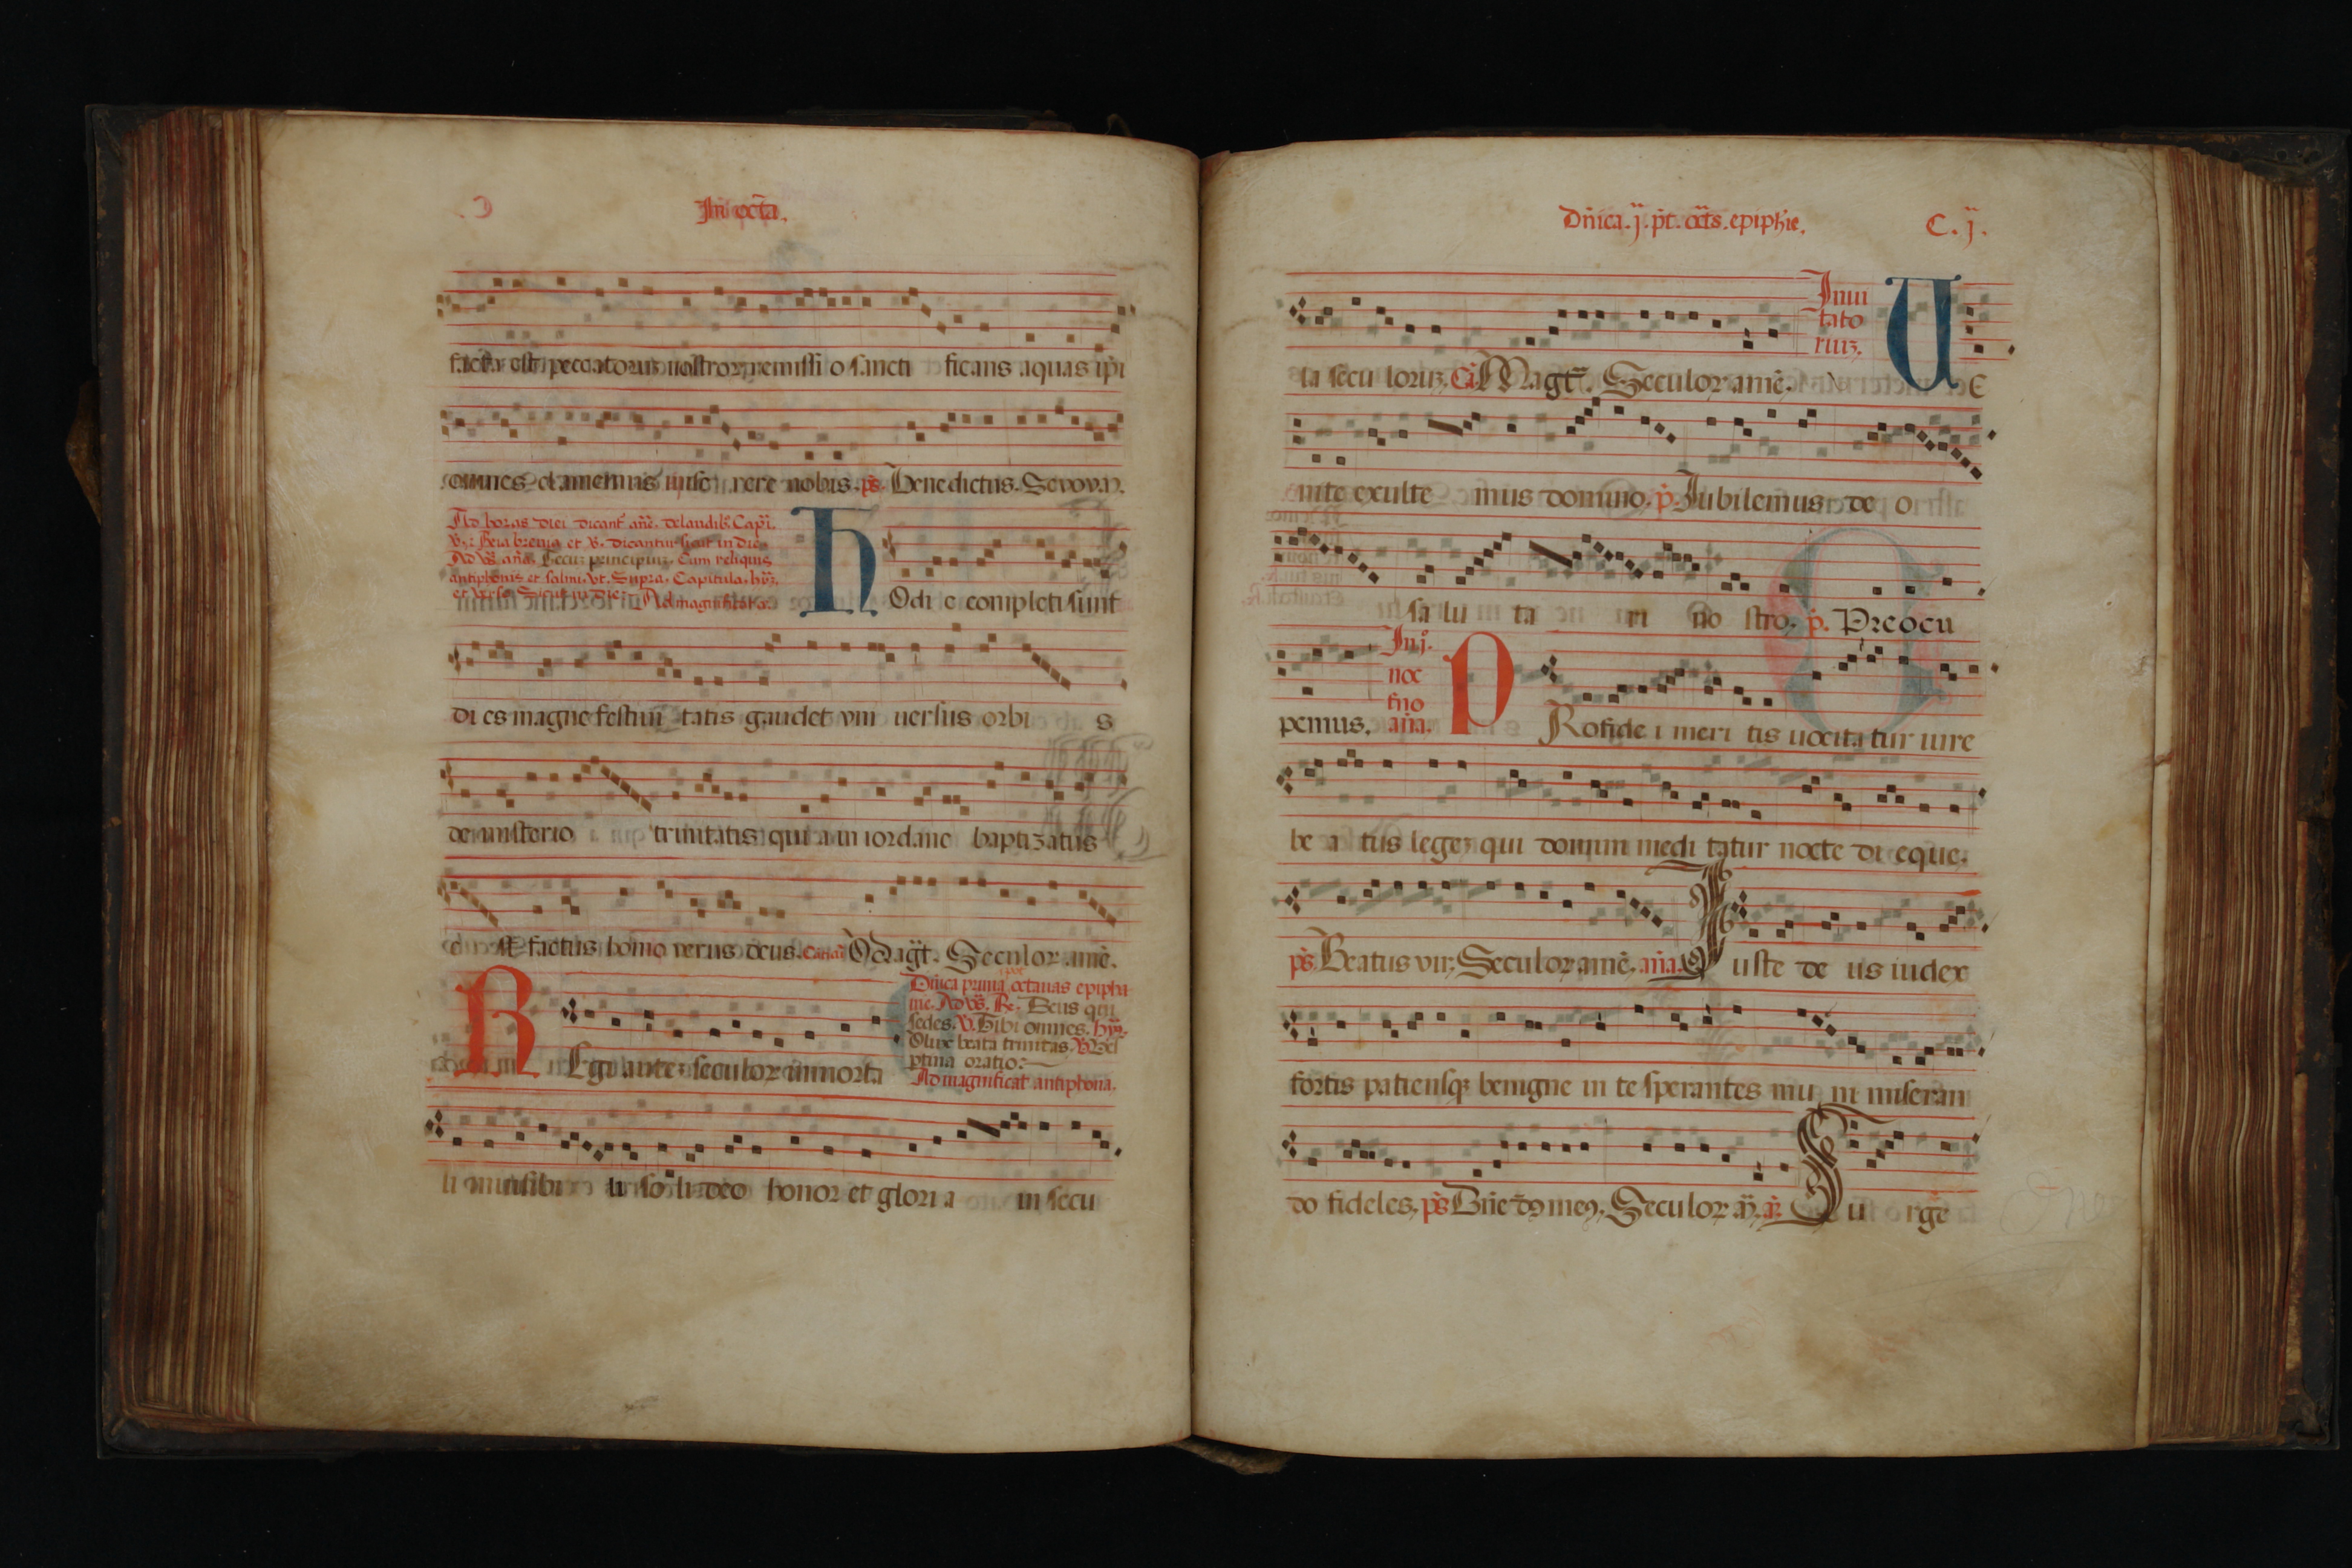 In octa.
facta est peccatoruz nostror remissi o sancti ficans aquas ipi
omnes clamemus mise rere nobis. ps. Benedictus. Seuouan.
Ad horas diei dicant añe. de laudib Capi.
et breuia et v. dicantur sicut in die
Ad vs. aña. Tecuz principiuz. Cum reliquis
antiphonis et salmi. vt. Supra. Capitula. hyz.
et verso. Sicut in die. Ad magnificat. a.
H Odi e completi sunt
di es magne festiui tatis gaudet vni uersus orbi s
de misterio trinitatis qui a in iordane baptizatus
est factus homo verus deus. Magt. Seculor amē.
Dñica prima post octauas epipha
nie. Ad vs. Re. Deus qui
sedes. v. Tibi omnes. hyz.
O lux beata trinitas. v. Ves
ptina oratio:
Ad magnificat antiphona.
R Egi autez seculor immorta
li inuisibi li so li deo honor et glori a in secu
Dñica. ij. pt. octs. epiphie. C. ij.
Inui
tato
riuz.
la secu loruz. Ca. Magt. Seculor amē. U E
nite exulte mus domino. p. Iubilemus de o
sa lu ta ri no stro. p. Preocu
In j.
noc
tno
aña.
pemus. P Ro fide i meri tis uocita tur iure
be a tus legez qui domini medi tatur nocte di eque.
ps. Beatus vir. Seculor amē. aña. I uste de us iudex
fortis patiensq benigne in te sperantes mu ni miseran
do fideles. ps. Dñe ds meus. Seculor a. a. Su rge